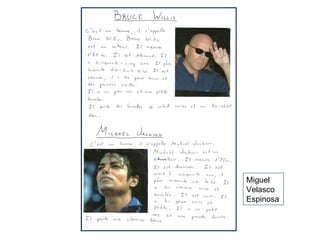 BRUCE WILLIS
C'est un homme, il s'appelle
Bruce Willis. Bruce Willis
est un acteur. Il mesure
Il est Allemand. Il
a cinquante-cinq ans. Il pèse
Il est
chauve, il a les yeux
Il a un nez et une petite
bouche.
Il porte des lunettes de soleil noires et un
bleu.
MICHAEL JACKSON
C'est un homme, il s'appelle Michael Jackson.
Michael Jackson est un
chanteur. Il mesure
Il est
mort à cinquante ans, il
pèse kilos. Il
a les cheveux noirs et
Il est Il
a les yeux noirs et
petits. Il a un petit
nez et une grande bouche.
Il porte une chemise bleue.
Miguel
Velasco
Espinosa